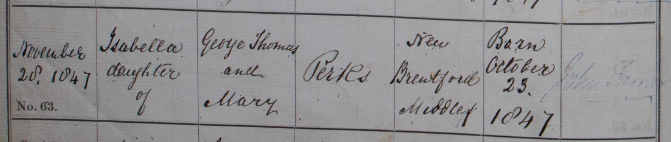 November
28. 1847
No. 63.
Isabella
daughter
of
George Thomas
and
Mary
Perks
New
Brentford
Middlex
Born
October
23.
1847
John